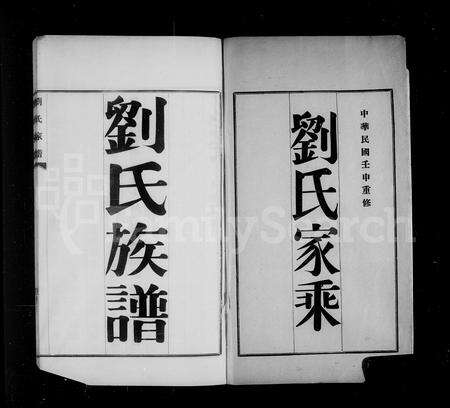 中華民國壬申重修
劉氏家乘
劉氏族譜
劉氏家譜
FamilySearch